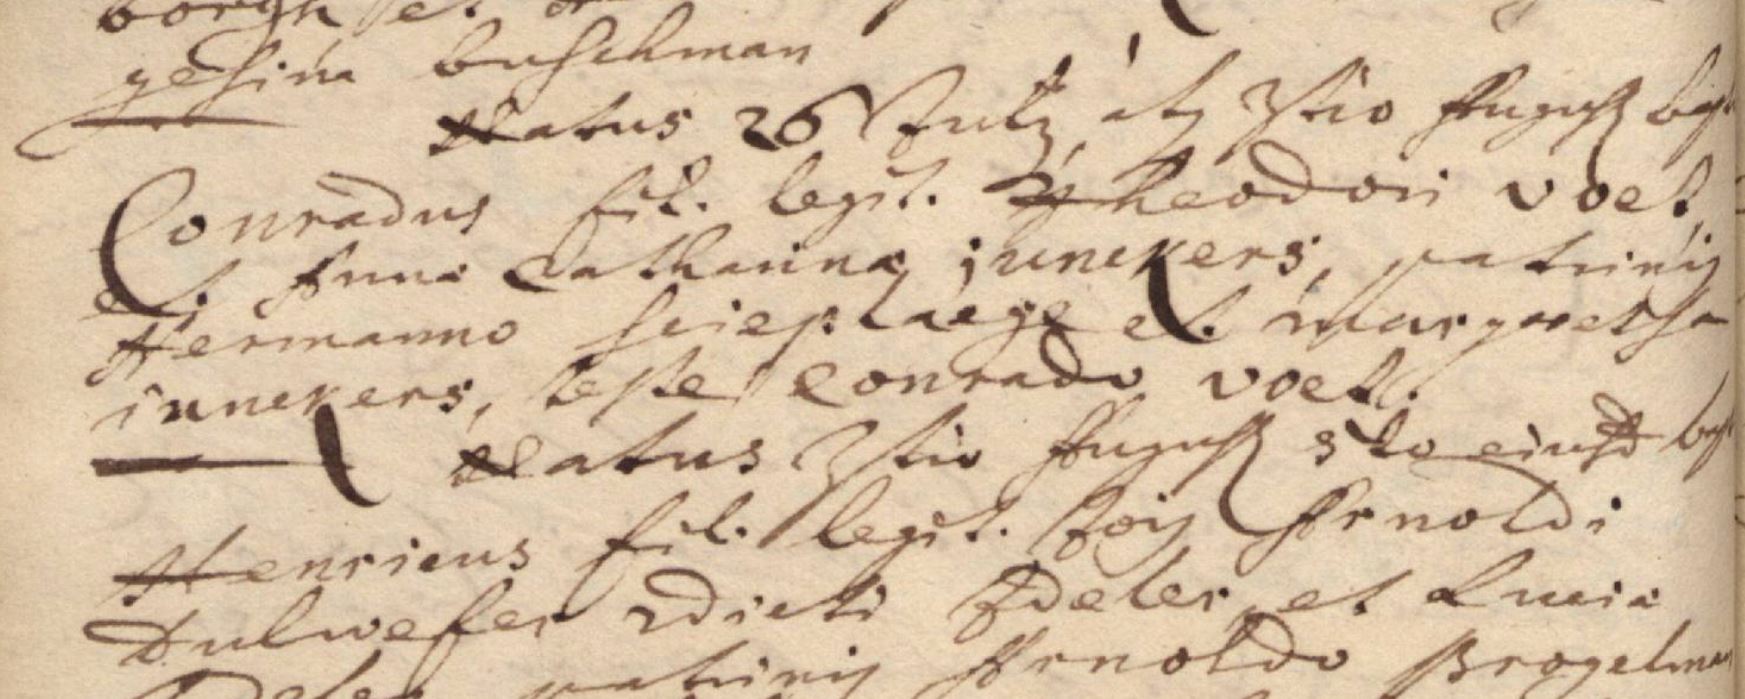 borgh et
gesina buschman
Natus 26 July 3tio Augusti bapt
Conradus fil. legit. Theodori voet,
et. Anna Catharina junckers, patrinij
Hermanno et. Margaretha
junckers, teste Conrado voet.
Natus 3tio Augusti 5to eiusd bapt
Henricus fil. legit. Joij Arnoldi
Dulwefer dicti Edeler, et Lucia
Edeler patrinij Arnoldo Brogelman